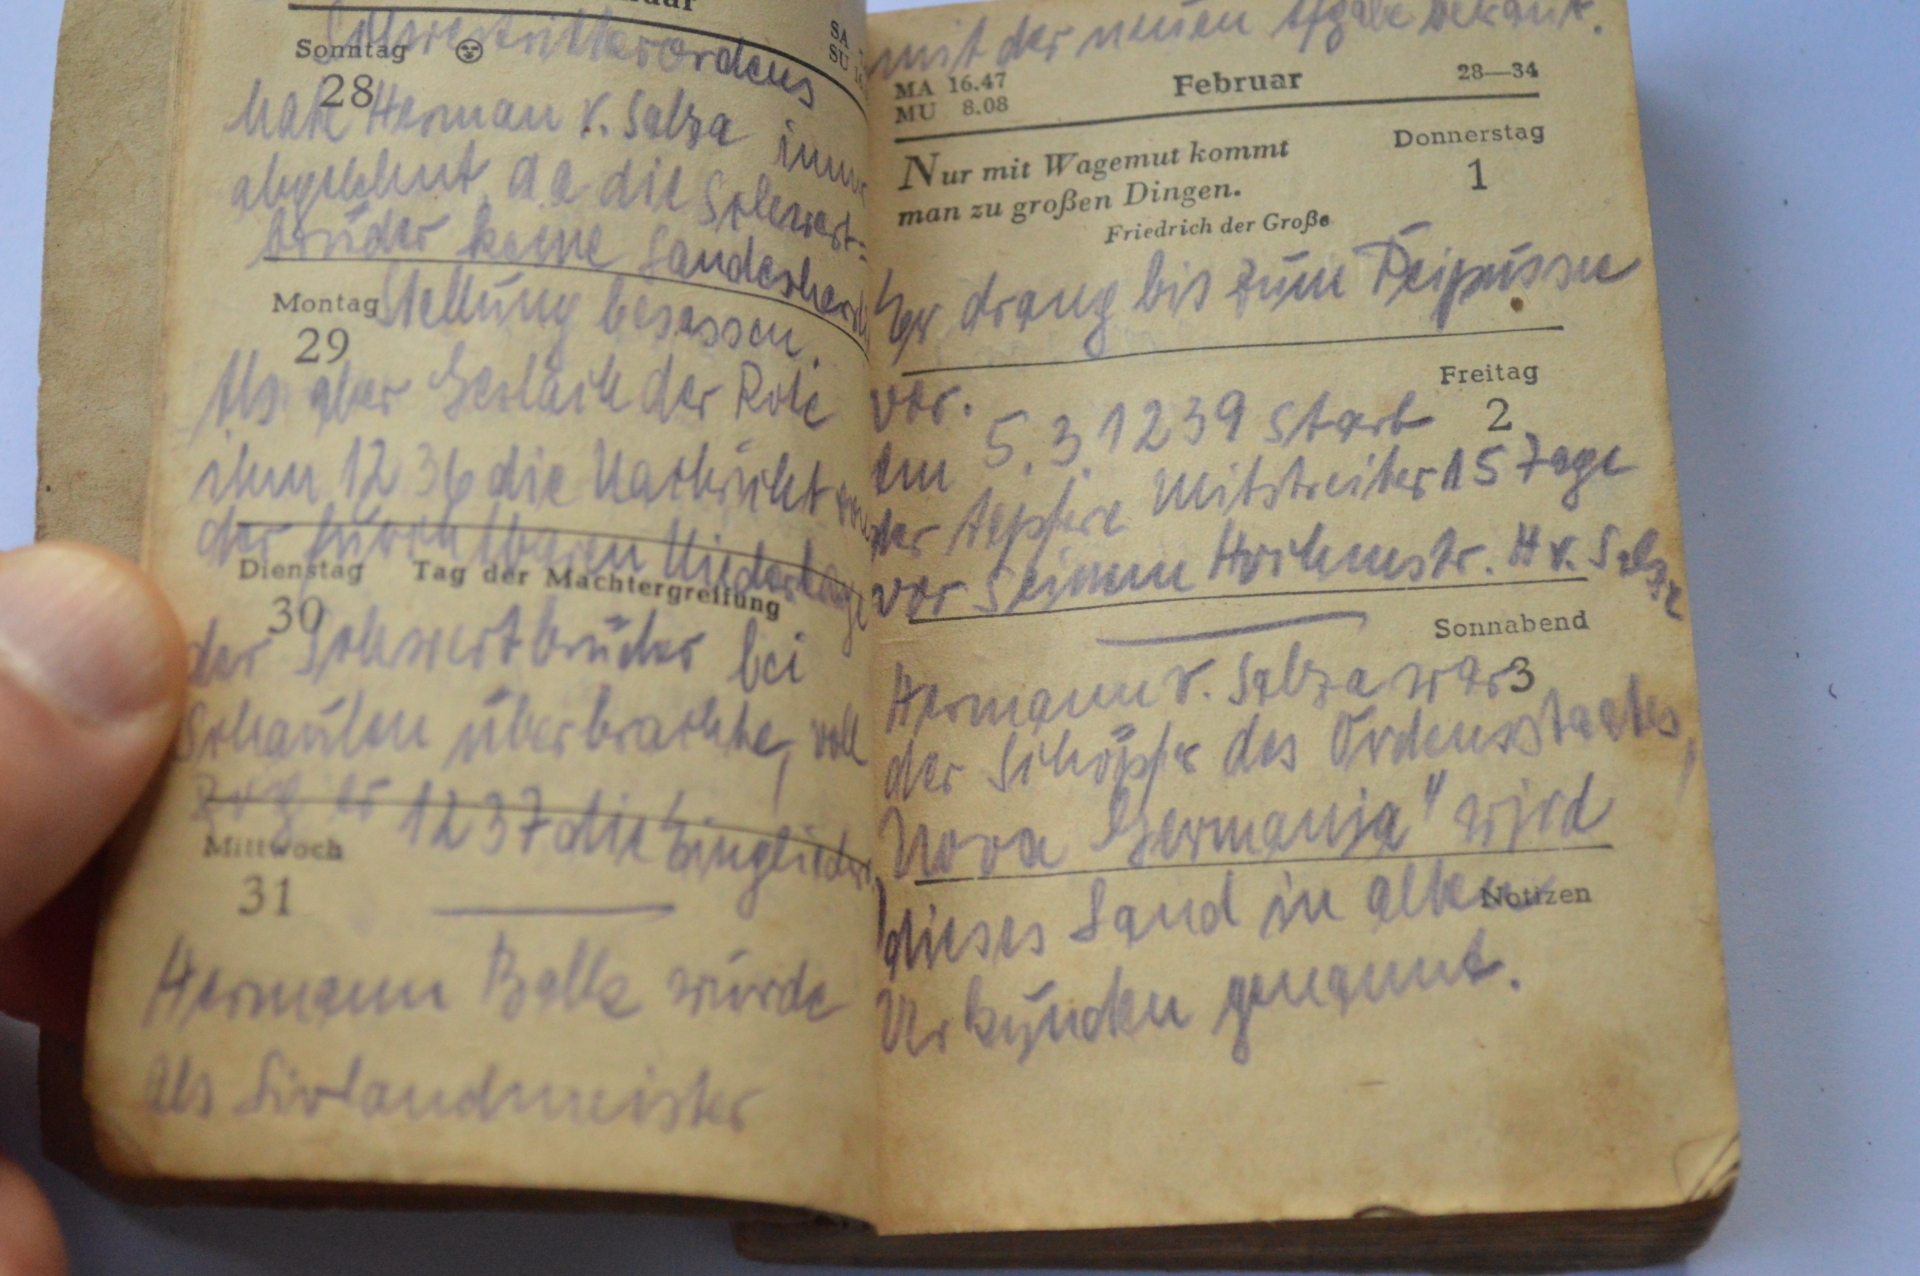 uar
SA
SU 1
Schwertritterordens
Sonntag
28
hatte Herman v. Salza immer
abgelehnt, da die Schwert-
brüder keine Landesherrl
Montag
29
Stellung besessen.
Als aber Gerlach der Rote
ihm 1236 die Nachricht von
der furchtbaren Niederlage
Dienstag Tag der Machtergreifung
30
der Schwertbrüder bei
Schaulen überbrachte, voll
zog er 1237 die Einglieder
Mittwoch
31
Hermann Balk wurde
als Livlandmeister
mit der neuen Afgabe bekant.
MA 16.47
MU 8.08
Februar
28—34
Donnerstag
1
Nur mit Wagemut kommt
man zu großen Dingen.
Friedrich der Große
Er drang bis zum Peipussee
vor.
Freitag
2
Am 5.3.1239 starb
der tapfere Mitstreiter 15 Tage
vor seinem Hochmstr. H v. Salza
Sonnabend
3
Hermann v. Salza war
der Schöpfer des Ordensstaates,
Nova Germania" wird
Notizen
dieses Land in alten
Urkunden genannt.